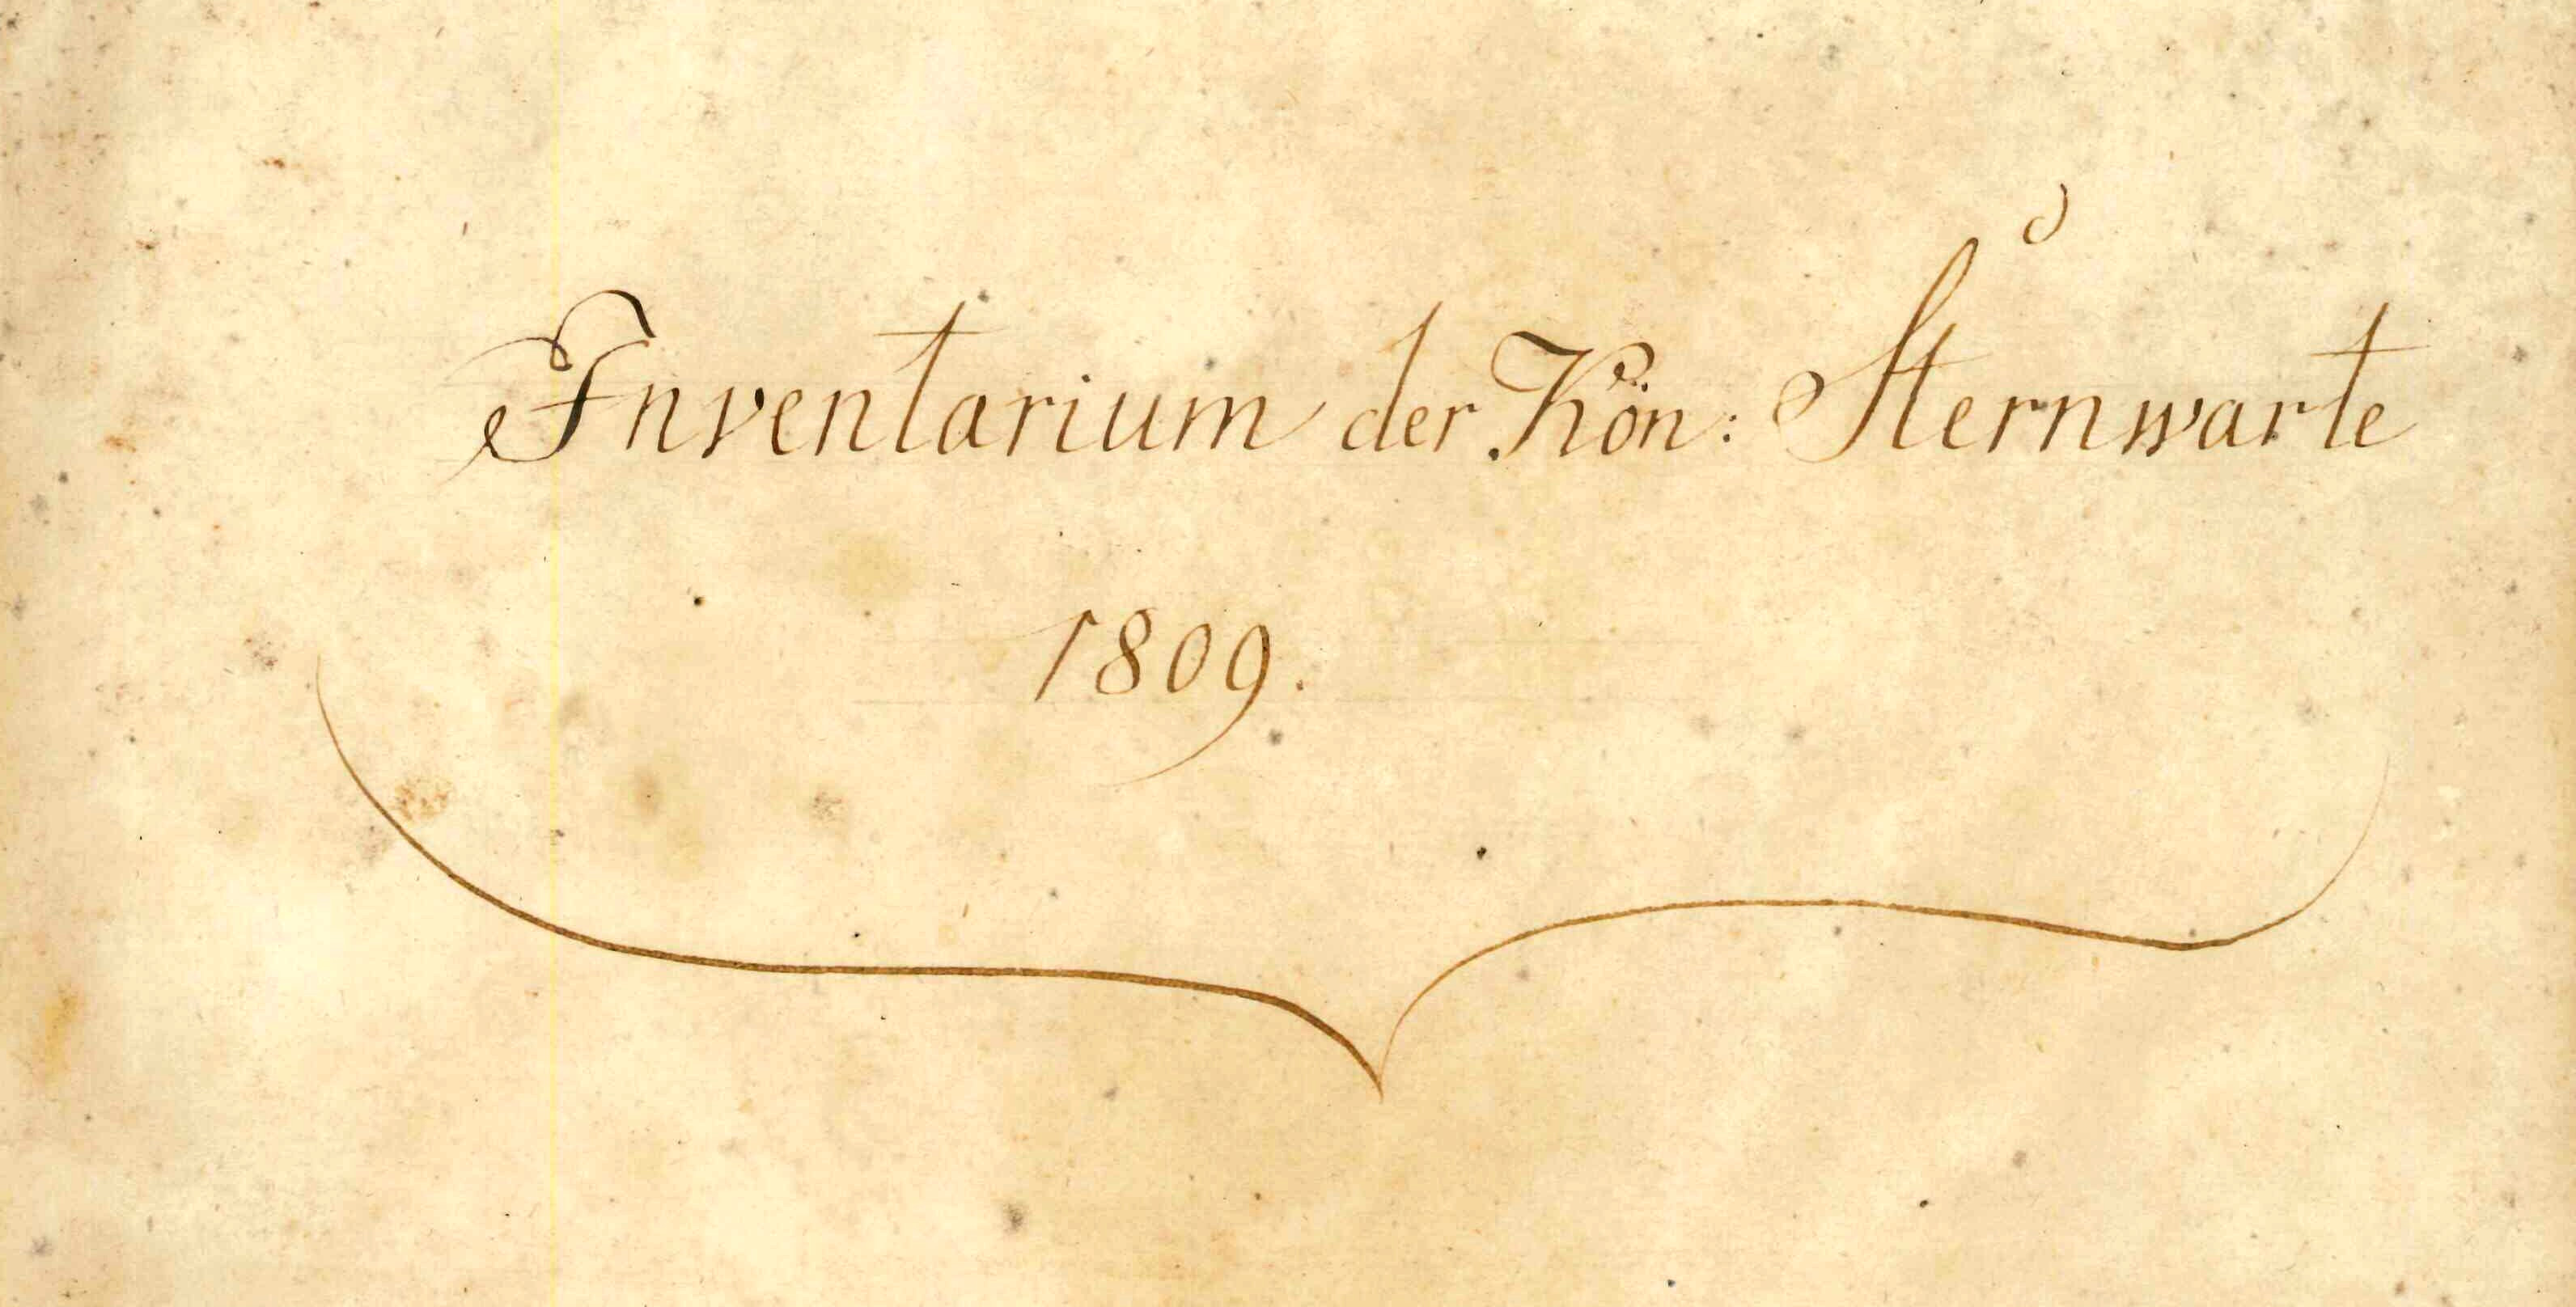 Inventarium der Kön: Sternwarte
1809.